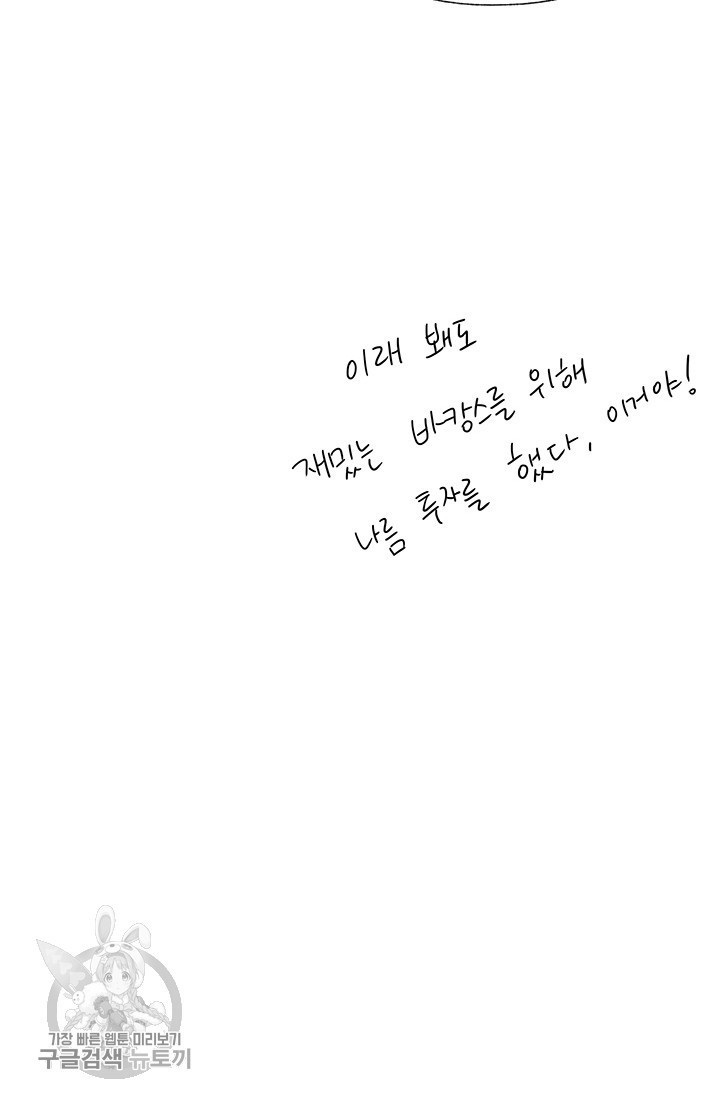 이래 봬도
재밌는 바캉스를 위해
나름 투자를 했다, 이거야!
가장 빠른 웹툰 미리보기
구글검색 뉴토끼